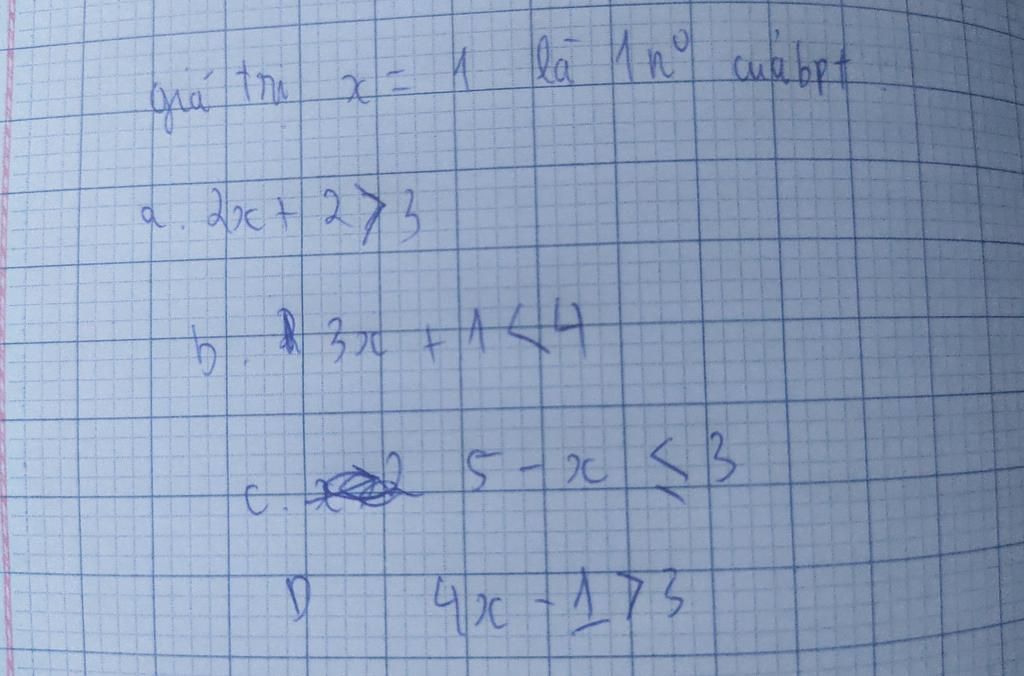 giá trị x = 1 là 1 n⁰ của bpt
a. 2x + 2 > 3
b. 3x + 1 < 4
c. 5 - x ≤ 3
D 4x - 1 > 3